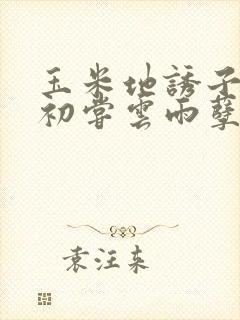 玉米地誘子
初嘗雲雨孽
袁汪束